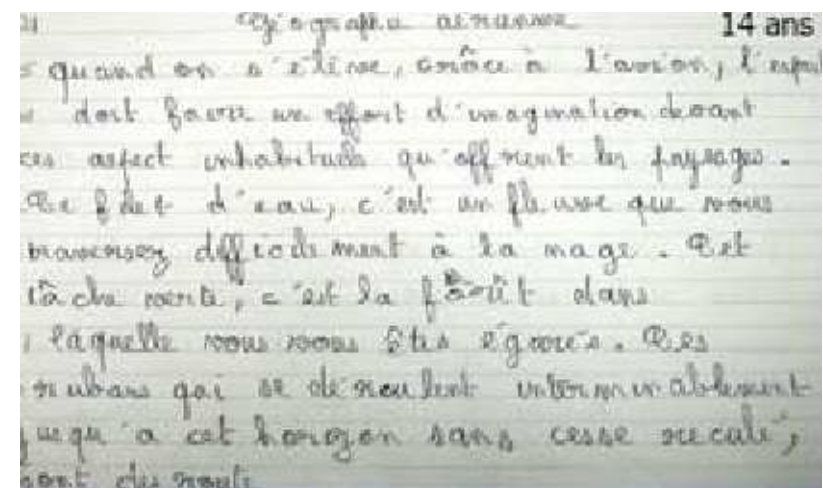 Géographie aérienne 14 ans
quand on s'élève, grâce à l'avion, l'esprit
doit faire un effort d'imagination devant
ces aspect inhabituels qu'offrent les paysages.
Ce filet d'eau, c'est un fleuve que vous
traversez difficilement à la nage. Cet
tâche verte, c'est la forêt dans
laquelle vous vous êtes égarés. Ces
rubans qui se déroulent interminablement
jusqu'à cet horizon sans cesse reculé,
sont des route